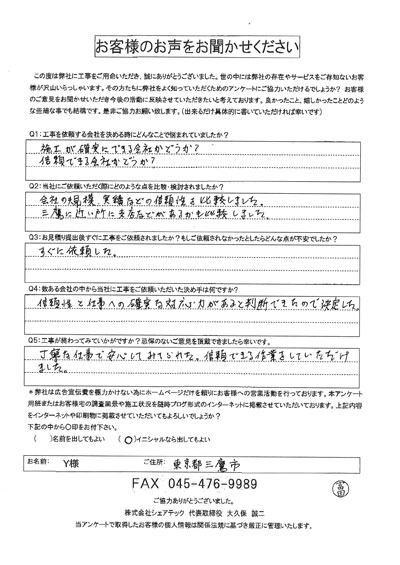 お客様のお声をお聞かせください
この度は弊社に工事をご用命いただき、誠にありがとうございました。世の中には弊社の存在やサービスをご存知ないお客
様が沢山いらっしゃいます。その方たちに弊社をよく知っていただくためのアンケートにご協力いただけるでしょうか? お客
様のご意見をお聞かせいただき今後の活動に反映させていただきたいと考えております。良かったこと、嬉しかったことどのよう
な些細な事でも結構です。是非ご協力お願い致します。(出来るだけ具体的に書いていただければ幸いです)
Q1:工事を依頼する会社を決める時にどんなことで悩まれていましたか?
施工が確実にできる会社かどうか?
信頼できる会社かどうか?
Q2:当社にご依頼いただく際にどのような点を比較・検討されましたか?
会社の規模、実績などの信頼性を比較しました。
三鷹に近い所に支店などがあるかも比較しました。
Q3:お見積り提出後すぐに工事をご依頼されましたか?もしご依頼されなかったとしたらどんな点が不安でしたか?
すぐに依頼した。
Q4:数ある会社の中から当社に工事をご依頼いただいた決め手は何ですか?
信頼性と仕事への確実な対応力があると判断できたので決定した。
Q5:工事が終わってみていかがですか?忌憚のないご意見を頂戴できましたら幸いです。
丁寧な仕事で安心してみてられた。信頼できる作業をしていただけ
ました。
*弊社は広告宣伝費を膨力かけない為にホームページだけを頼りにお客様への営業活動を行っております。本アンケート
用紙またはお客様宅の調査風景や施工状況を随時ブログ形式のインターネットに掲載させていただいております。上記内容
をインターネットや印刷物に掲載させていただいてもよろしいでしょうか?
下記の中から〇印をお付下さい。
( )名前を出してもよい (〇)イニシャルなら出してもよい
お名前: Y様 ご住所: 東京都三鷹市
FAX 045-476-9989
ご協力ありがとうございました。
株式会社シェアテック 代表取締役 大久保 誠二
当アンケートで取得したお客様の個人情報は関係法規に基づき厳正に管理いたします。